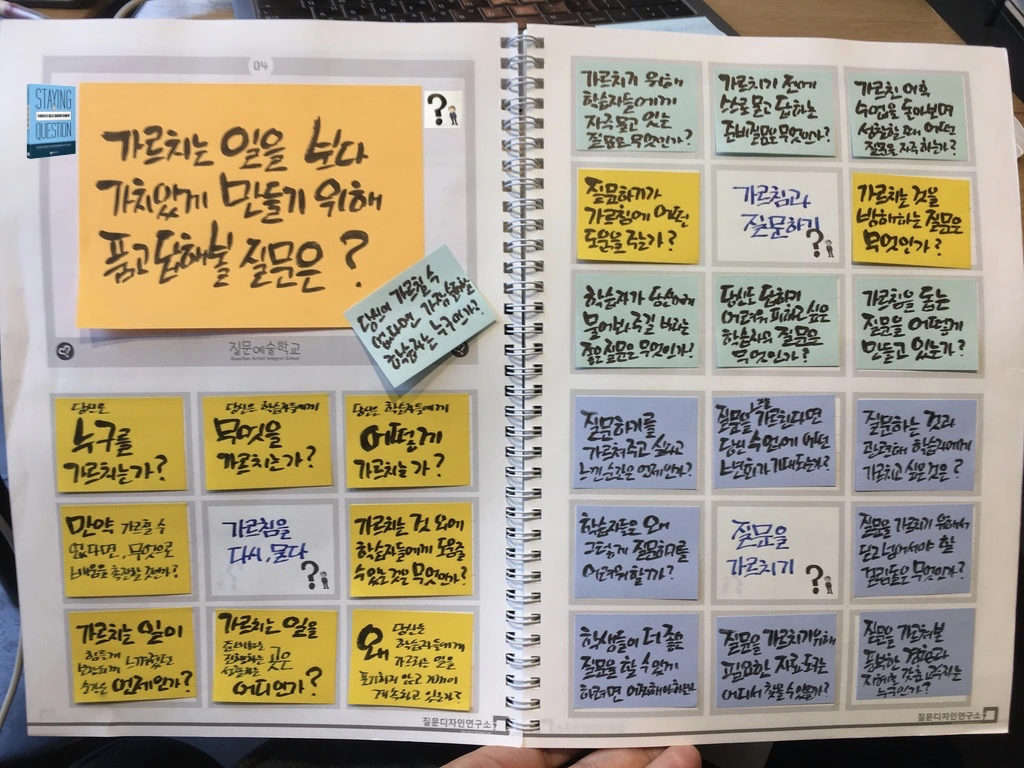 04
STAYING
QUESTION
가르치는 일을 보다
가치있게 만들기 위해
품고 답해볼 질문은?
당신이 가르칠 수
없다면 가장 슬퍼할
학습자는 누구인가?
질문예술학교
Question Artist Integral School
당신은
누구를
가르치는가?
당신은 학습자들에게
무엇을
가르치는가?
당신은 학습자들에게
어떻게
가르치는가?
만약 가르칠 수
없다면, 무엇으로
가르침을
다시, 묻다
?
가르치는 것 외에
학습자들에게 도움을
수 있는 것은 무엇인가?
가르치는 일이
힘들게
순간은 언제인가?
가르치는 일을
준비하는
진행하는 곳은
성찰하는
어디인가?
왜 당신은
학습자들에게
가르치는 일을
포기하지 않고
계속하고 있는가?
질문디자인연구소
가르치기 위해
학습자들에게
자주 묻고 있는
질문은 무엇인가?
가르치기 전에
스스로 묻고 답하는
준비질문은 무엇인가?
가르친 이후
수업을 돌아보며
성찰할 때 어떤
질문을 자주 하는가?
질문하기가
가르침에 어떤
도움을 주는가?
가르침과
질문하기
?
가르치는 것을
방해하는 질문은
무엇인가?
학습자가 당신에게
물어봐 주길 바라는
좋은 질문은 무엇인가?
당신도 답하기
어려워 피하고 싶은
학습자의 질문은
무엇인가?
가르침을 돕는
질문을 어떻게
만들고 있는가?
질문하기를
가르쳐주고 싶다고
느낀 순간은 언제인가?
질문을 가르친다면
당신 수업에 어떤
변화가 기대되는가?
질문하는 것과
관련해 학습자에게
가르치고 싶은 것은?
학습자들은 왜
그렇게 질문하기를
어려워할까?
질문을
가르치기
?
질문을 가르치기 위해서
뛰어넘어야 할
걸림돌은 무엇인가?
학생들이 더 좋은
질문을 할 수 있게
하려면 어떻게 해야 하는가
질문을 가르치기 위해
필요한 자료 또는
어디서 찾을 수 있을까?
질문을 가르쳐본
풍부한 경험과
지혜를 갖춘
누구인가?
질문디자인연구소